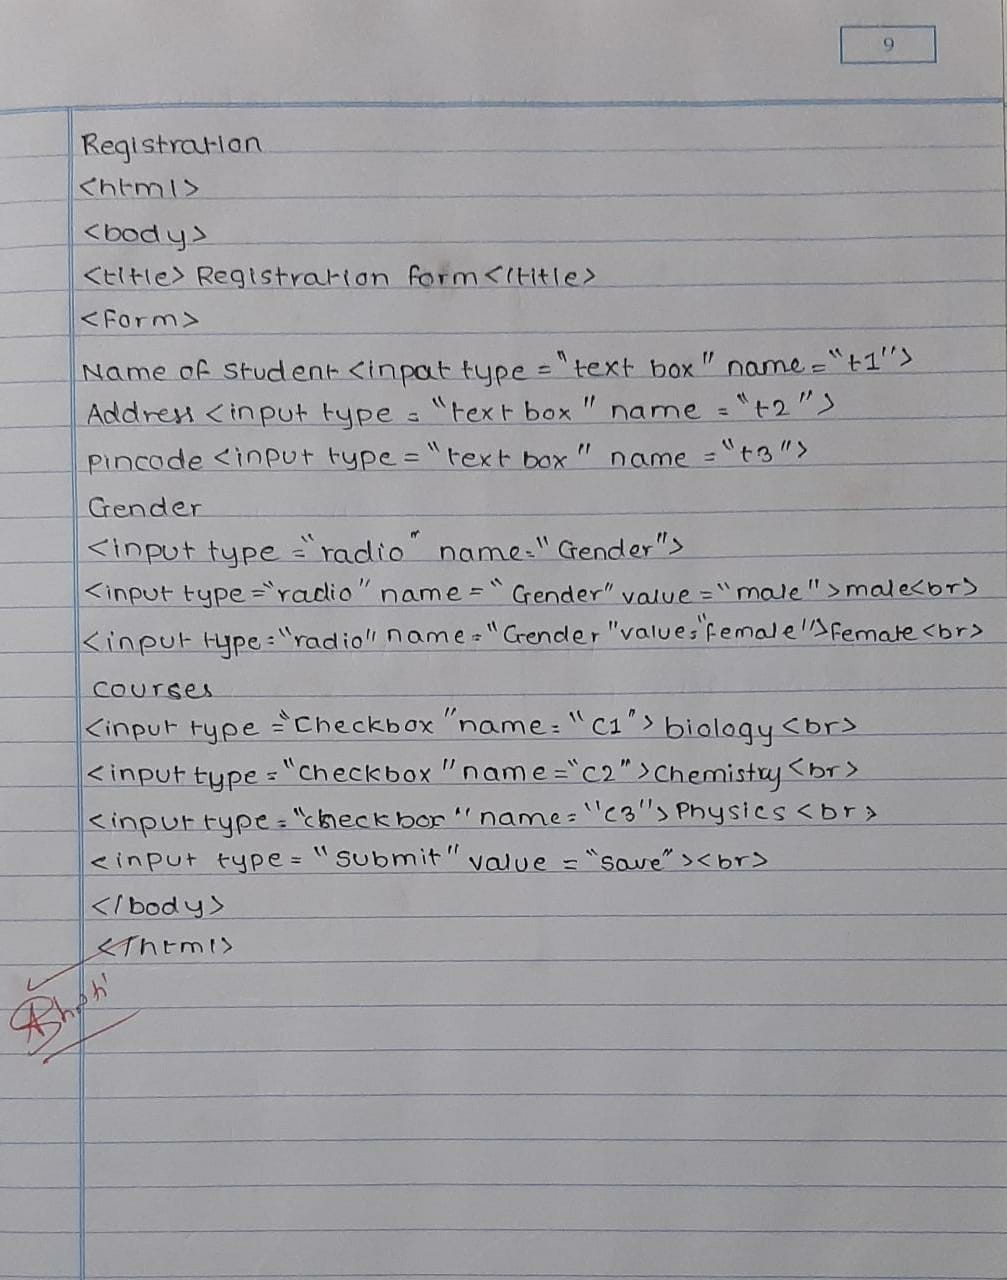 9
Registration
<html>
<body>
<title> Registration form </title>
<Form>
Name of student <input type = "text box" name = "t1">
Address <input type = "text box" name = "t2">
Pincode <input type = "text box" name = "t3">
Gender
<input type = "radio" name = "Gender">
<input type = "radio" name = "Gender" value = "male" > male<br>
<input type = "radio" name = "Gender" value = "female"> female <br>
courses
<input type = "checkbox" name = "c1"> biology <br>
<input type = "checkbox" name = "c2"> chemistry <br>
<input type = "checkbox" name = "c3"> Physics <br>
<input type = "submit" value = "save"><br>
</body>
</html>